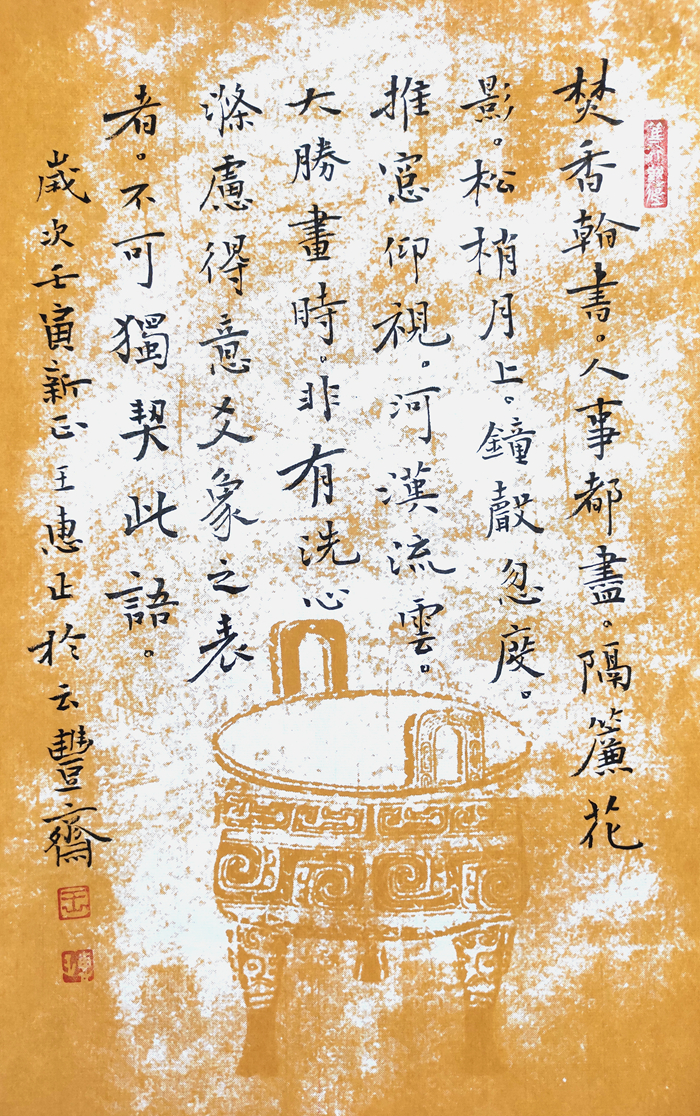 焚香翰書。人事都盡。隔簾花
影。松梢月上。鐘聲忽度。
推窓仰視。河漢流雲。
大勝晝時。非有洗心
滌慮得意爻象之表
者。不可獨契此語。
歲次壬寅新正王惠正於云豐齋